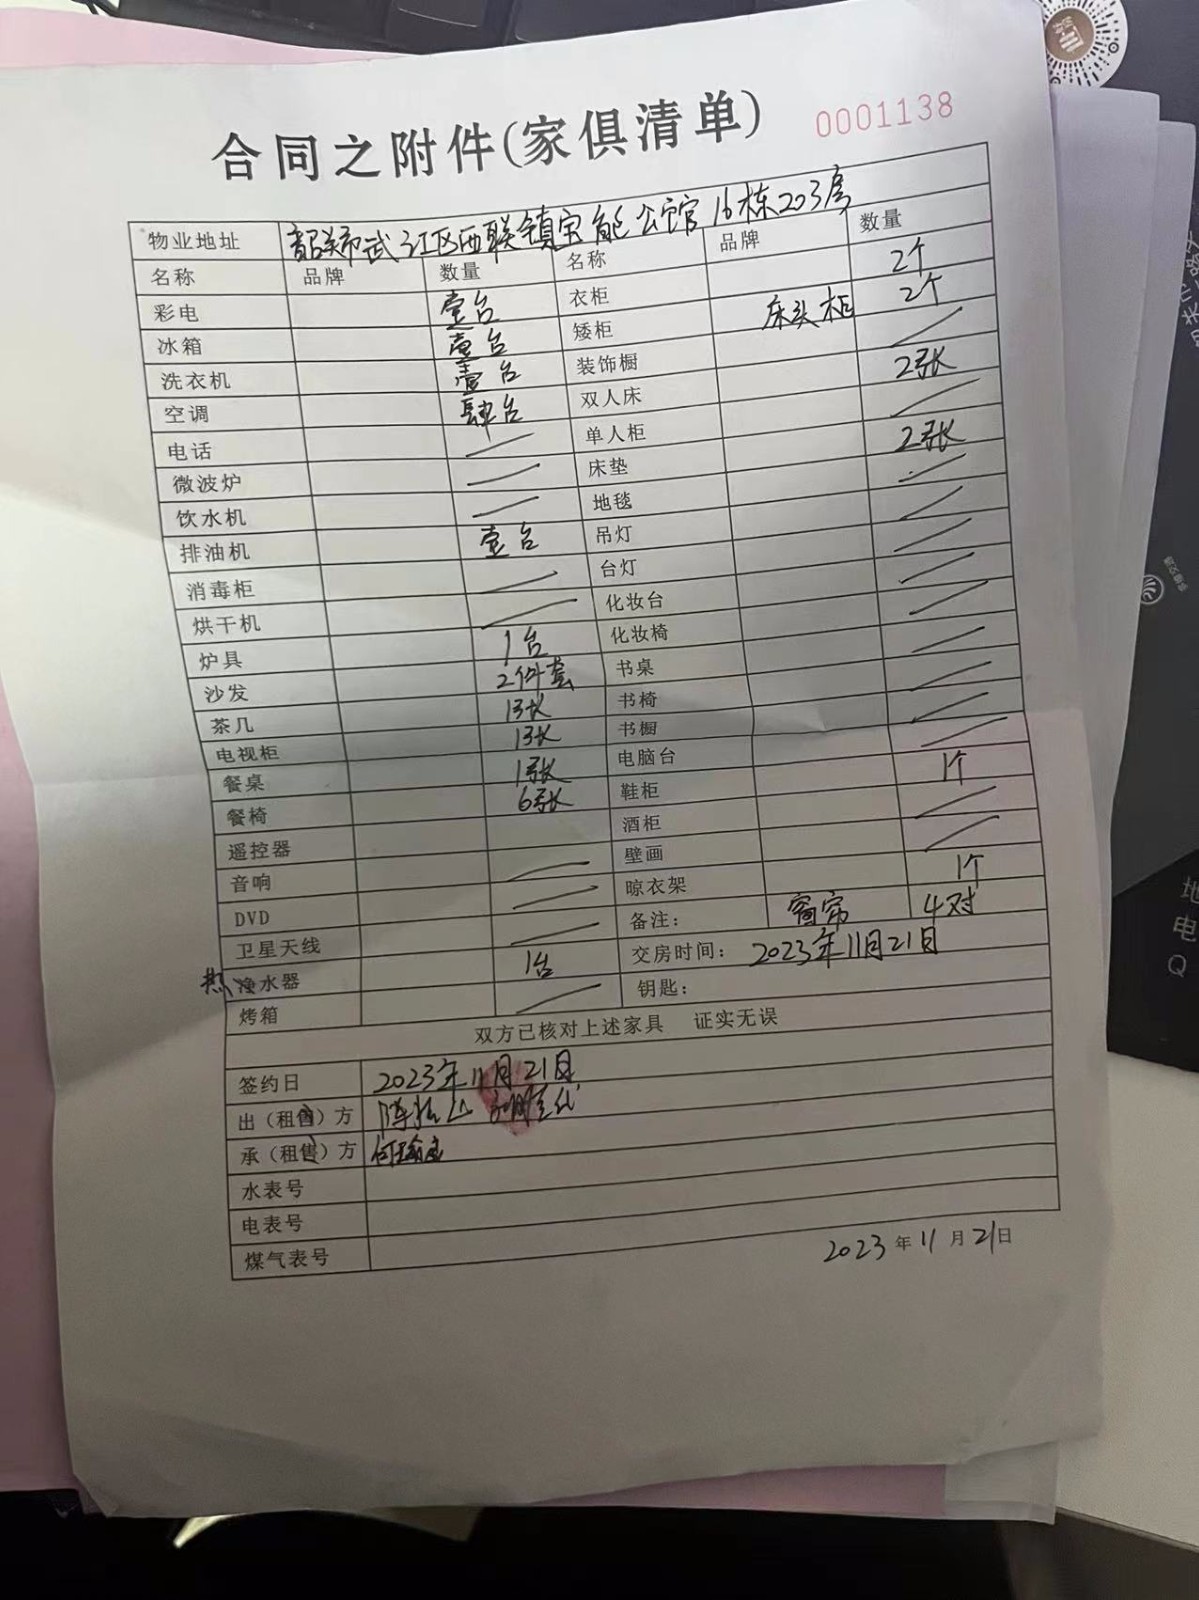 合同之附件(家俱清单) 0001138
物业地址 韶关市武江区西联镇宝能公馆16栋203房
名称 品牌 数量 名称 品牌 数量
彩电 壹台 衣柜 2个
冰箱 壹台 矮柜 床头柜 2个
洗衣机 壹台 装饰橱
空调 肆台 双人床 2张
电话 单人柜
微波炉 床垫 2张
饮水机 地毯
排油机 壹台 吊灯
消毒柜 台灯
烘干机 化妆台
炉具 1台 化妆椅
沙发 2件套 书桌
茶几 1张 书椅
电视柜 1张 书橱
餐桌 1张 电脑台
餐椅 6张 鞋柜 1个
遥控器 酒柜
音响 壁画
DVD 晾衣架 1个
卫星天线 备注: 窗帘 4对
热净水器 1台 交房时间: 2023年11月21日
烤箱 钥匙:
双方已核对上述家具 证实无误
签约日 2023年11月21日
出（租售）方
承（租售）方
水表号
电表号
煤气表号
2023年11月21日
地
电
Q